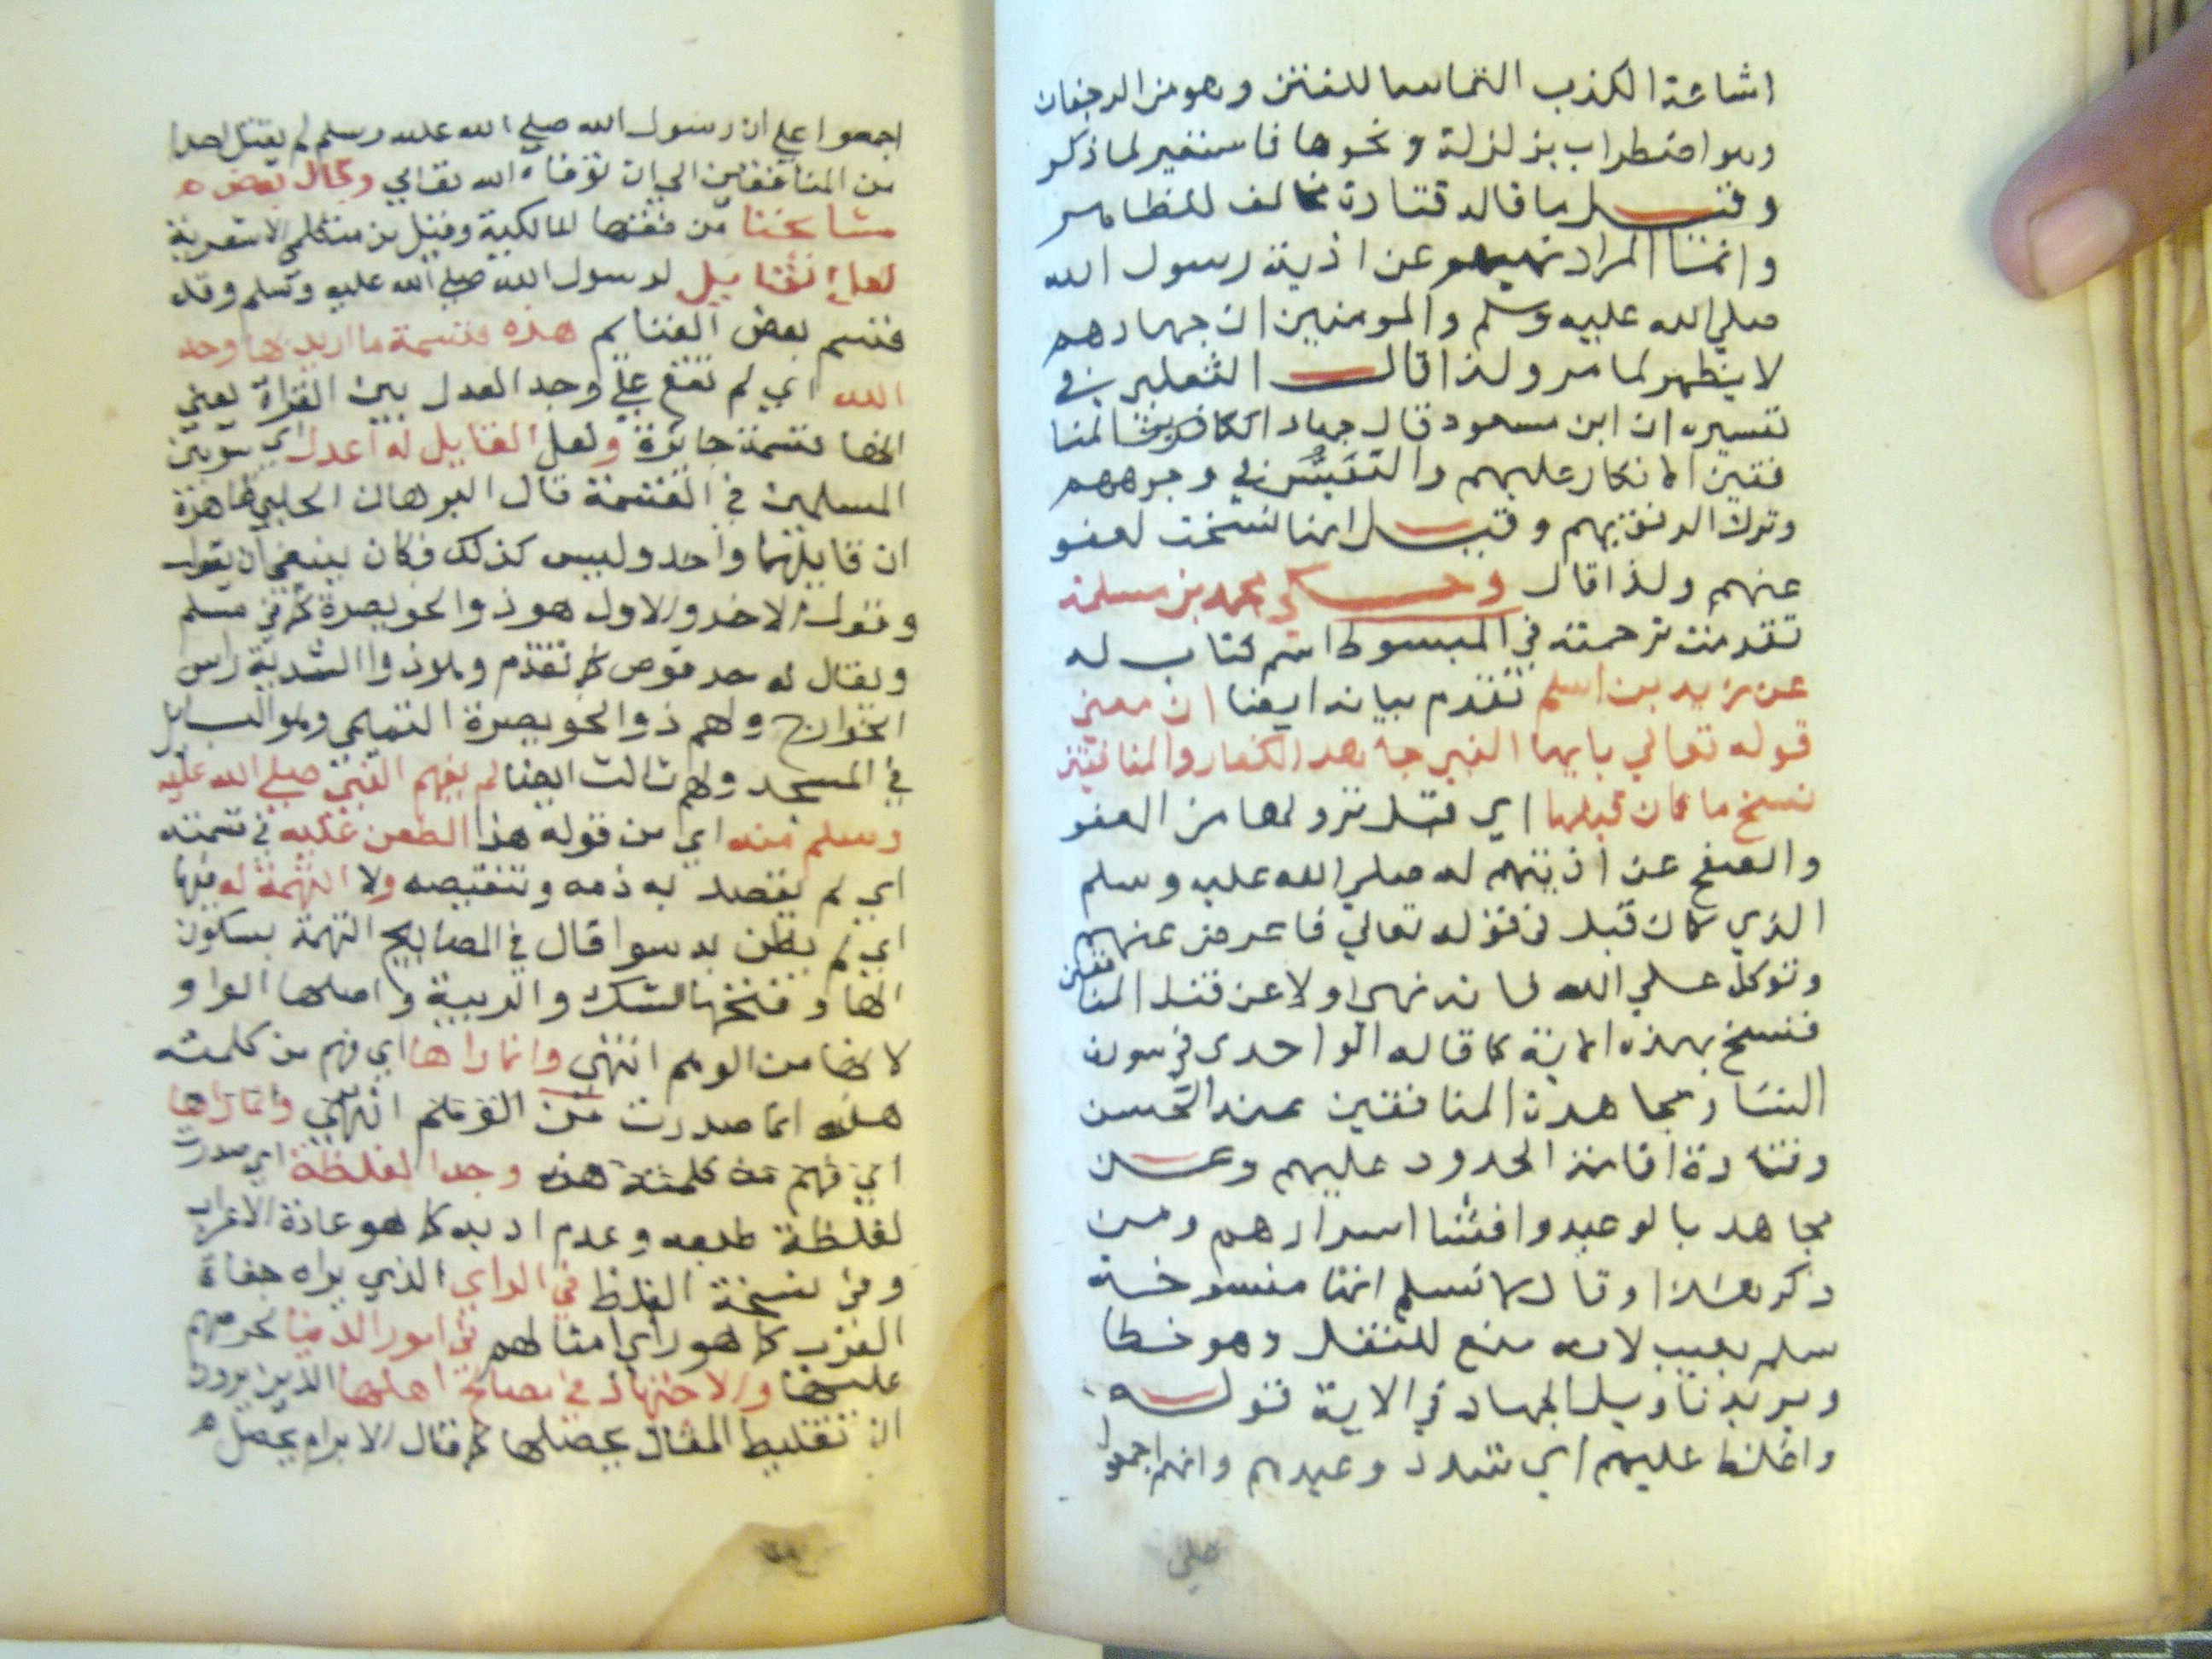 اشاعة الكذب التماسا للفتن وهو من الرجفان
وهو اضطراب بزلزلة ونحوها فاستعير لما ذكر
وقيل ما قاله قتادة مخالف للظاهر
وانما المراد نهيهم عن اذية رسول الله
صلي الله عليه وسلم والمومنين ان جهادهم
لا يظهر لما مر ولذا قال الثعلبي في
تفسيره ان ابن مسعود قال جهاد الكافرين المنا
فقين الانكار عليهم والتعبس في وجوههم
وترك الرفق بهم وقيل انها نسخت لعفو
عنهم ولذا قال وحكي محمد بن مسلمة
تقدمت ترجمته في المبسوط اسم كتاب له
عن زيد بن اسلم تقدم بيانه ايضا ان معني
قوله تعالي يايها النبي جاهد الكفار والمنافقين
نسخ ما كان قبلها اي قبل نزولها من العفو
والصفح عن اذيتهم له صلي الله عليه وسلم
الذي كان قبل في قوله تعالي فاعرض عنهم
وتوكل علي الله فانه نهي اولا عن قتل المنافقين
فنسخ بهذه الاية كما قاله الواحدي في سورة
النسا ومجاهدة المنافقين عند الحسن
وقتادة اقامة الحدود عليهم وعن
مجاهد بالوعيد وافشا اسرارهم ومن
ذكر هذا وقال لا نسلم انها منسوخة
سلم يصيب لانه منع للنقل وهو خطا
ويريد تاويل الجهاد في الاية قوله
واغلظ عليهم اي شدد وعيدهم وانهم اجمعوا
علي
اجمعوا علي ان رسول الله صلي الله عليه وسلم لم يقتل احدا
من المنافقين الي ان توفاه الله تعالي وقال بعض
مشايخنا من فقها المالكية وقيل من متكلمي الاشعرية
لعل القايل لرسول الله صلي الله عليه وسلم وقد
قسم بعض الغنايم هذه قسمة ما اريد بها وجه
الله اي لم تقع علي وجه العدل بين القراة يعني
انها قسمة جايرة ولعل القايل له اعدل اي سو بين
المسلمين في القسمة قال البرهان الحلبي ظاهره
ان قايلهما واحد وليس كذلك فكان ينبغي ان يقول
وقول الاخر والاول هو ذو الخويصرة كما في مسلم
ويقال له حرقوص كما تقدم وهو ذوا الثدية راس
الخوارج ولهم ذو الخويصرة التميمي وهو البايل
في المسجد ولهم ثالث ايضا لم يفهم النبي صلي الله عليه
وسلم منه اي من قوله هذا الطعن عليه في قسمته
اي لم يقصد به ذمه وتنقيصه ولا التهمة له فيها
اي لم يظن به سوا قال في المصابيح التهمة بسكون
الها وفتحها الشك والريبة واصلها الواو
لانها من الوهم انتهي وانما راها اي فهم من كلمته
هذه انما صدرت من القوم انتهي وانما راها
اي فهم من كلمته هذه وجها لغلظة اي صدرت
لغلظة طبعه وعدم ادبه كما هو عادة الاعراب
وفي نسخة الغلط في الراي الذي يراه جفاة
العرب كما هو راي امثالهم في امور الدنيا لحرصهم
عليها والاجتهاد في مصالح اهلها الذين يرون
ان تغليظ المقال يحصلها كما قال الابرام يحصل